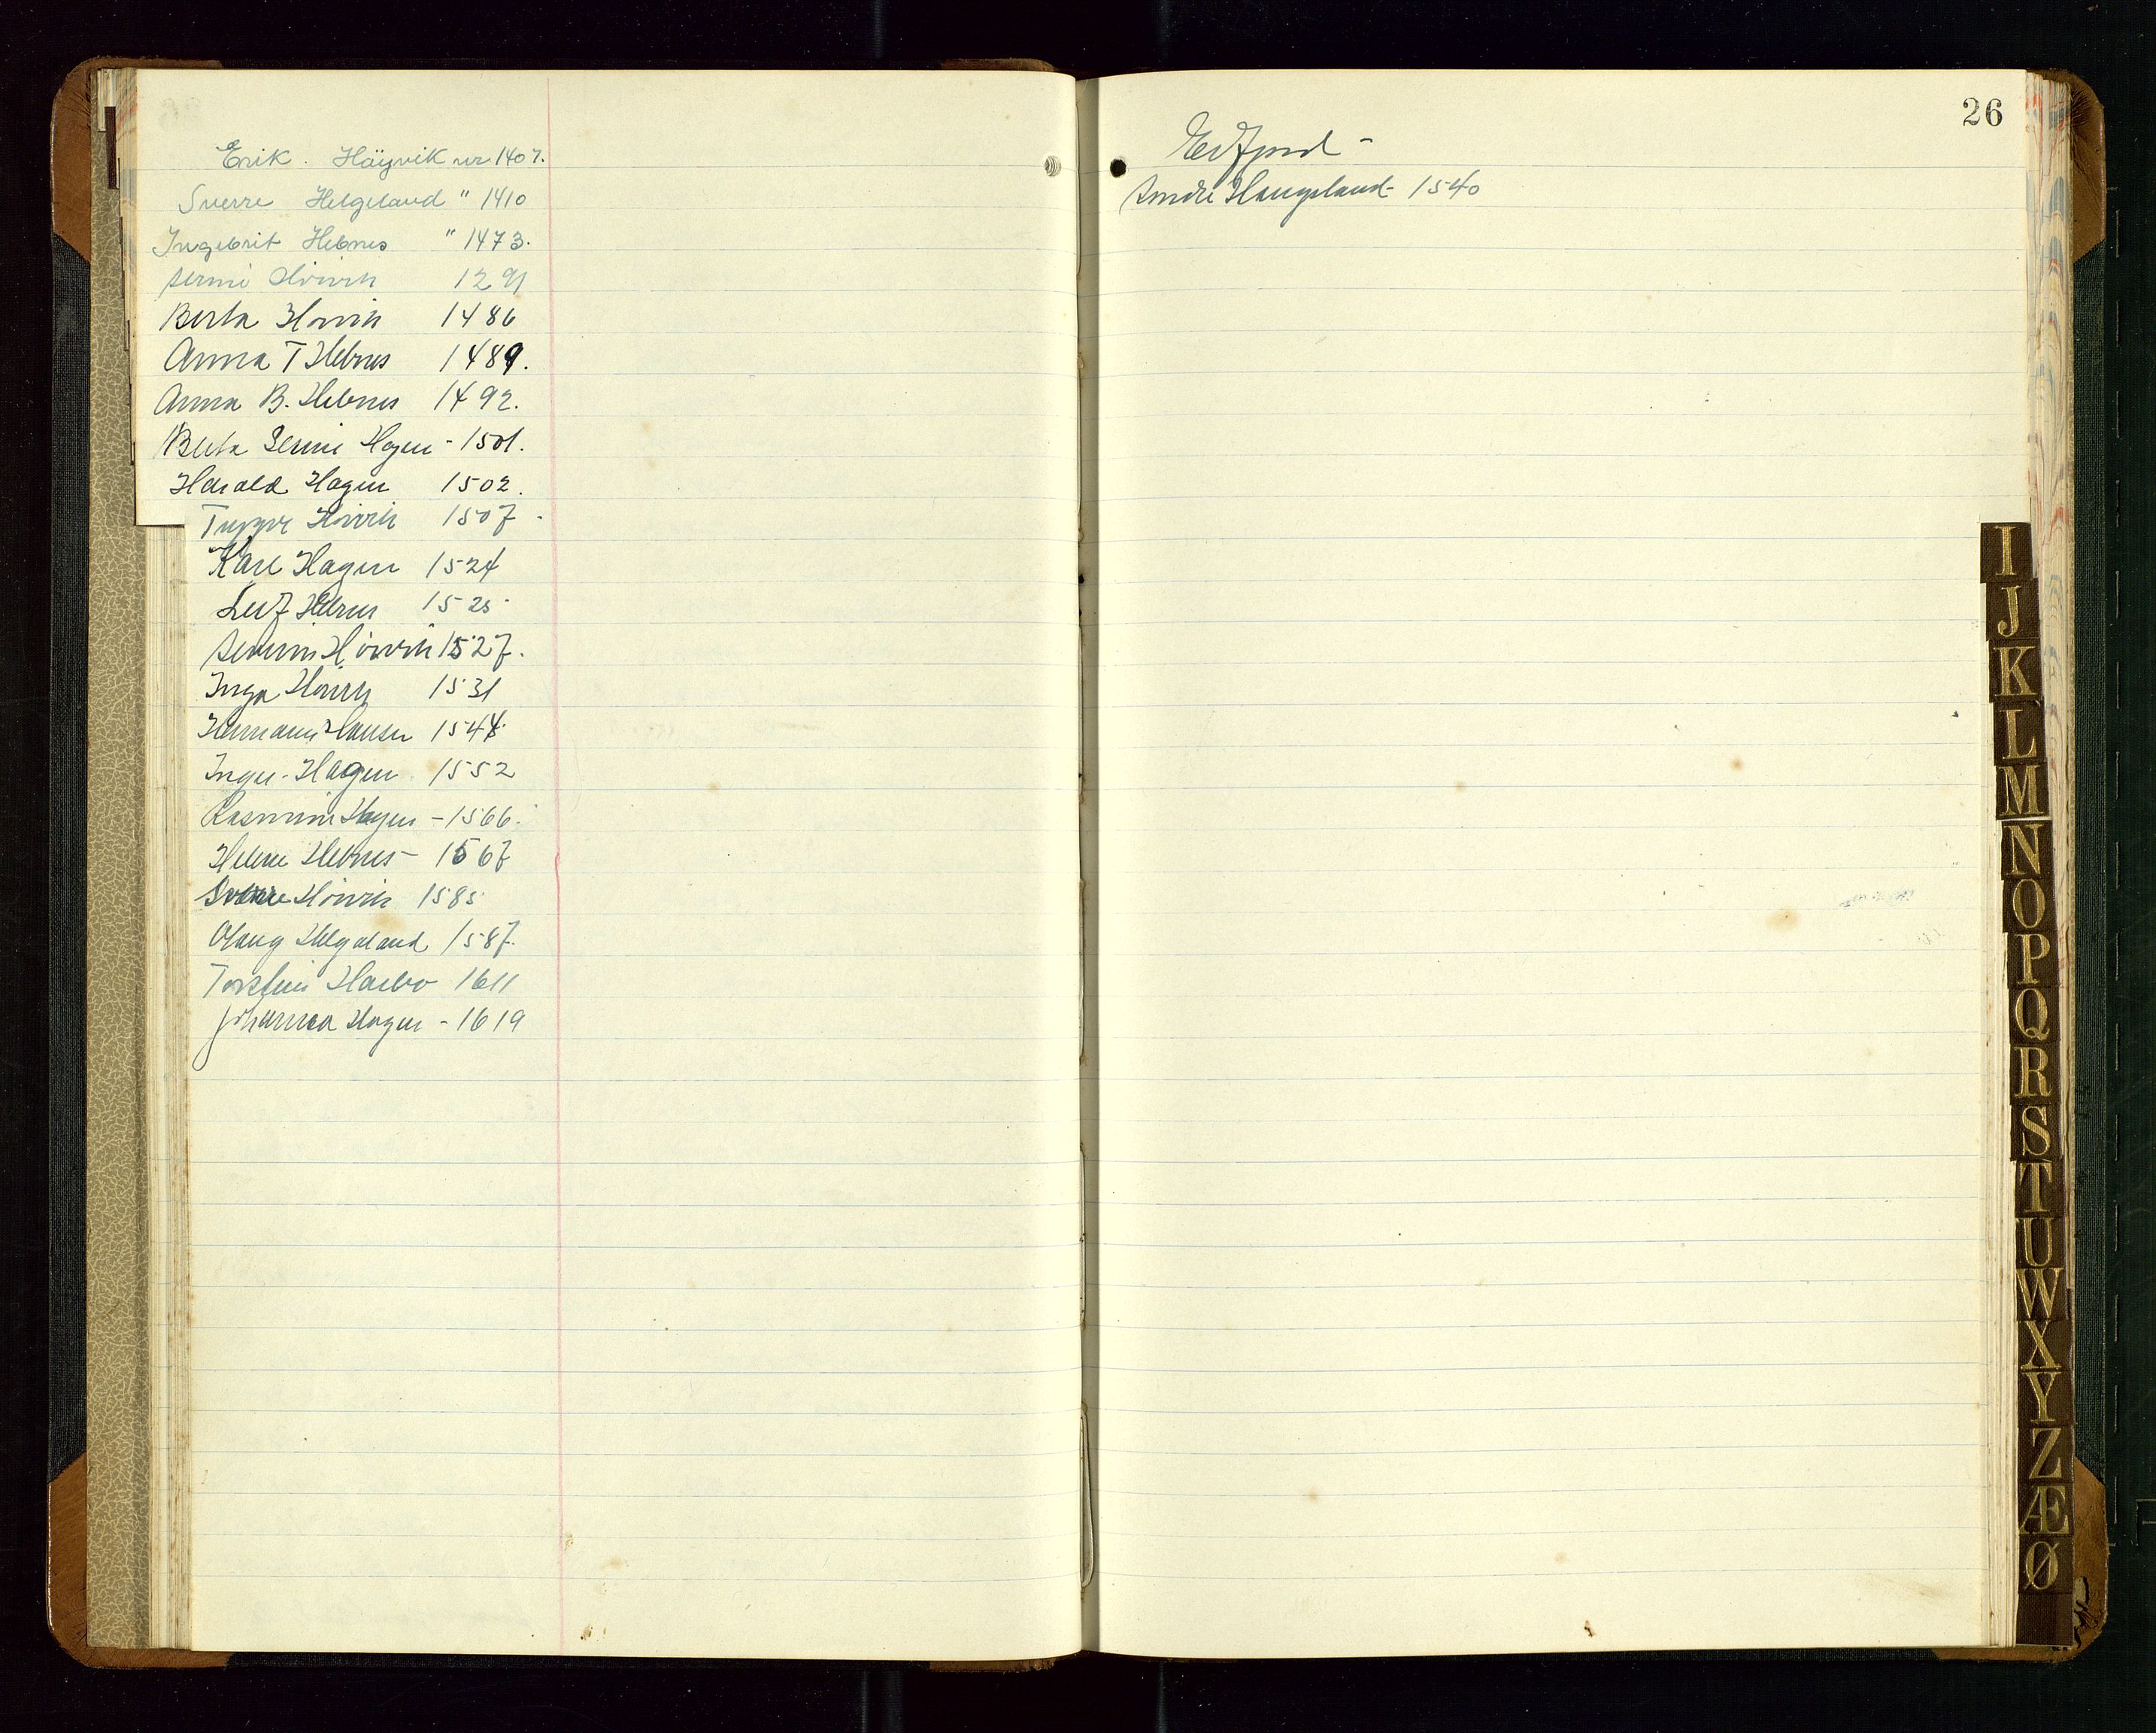 Erik. Høyvik nr. 1407.
Sverre Helgeland " 1410
Ingebrit Hebnes " 1473.
1291
Berta Hövik 1486
Anna T Hebnes 1489.
Anna B. Hebnes 1492.
Berta Serine Hagen - 1501.
Harald Hagen 1502.
Trygve Hövik 1507.
Kåre Hagen 1524
Leif Hebnes 1525
Severin Hövik 1527.
Inga Hövik 1531
Hermann Hansen 1544.
Inger Hagen 1552
Rasmine Hagen - 1566.
Helene Hebnes - 1567
Sverre Hövik 1585
Olaug Helgaland 1587.
Torstein Harbo 1611
Johanna Hagen - 1619
26
Erfjord -
Sindre Haugeland - 1540
I
J
K
L
M
N
O
P
Q
R
S
T
U
W
X
Y
Z
Æ
Ø